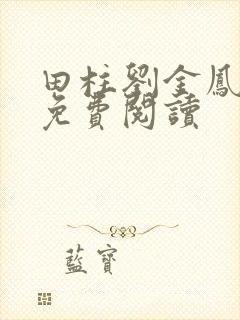 田柱劉金鳳
免費閱讀
藍寶